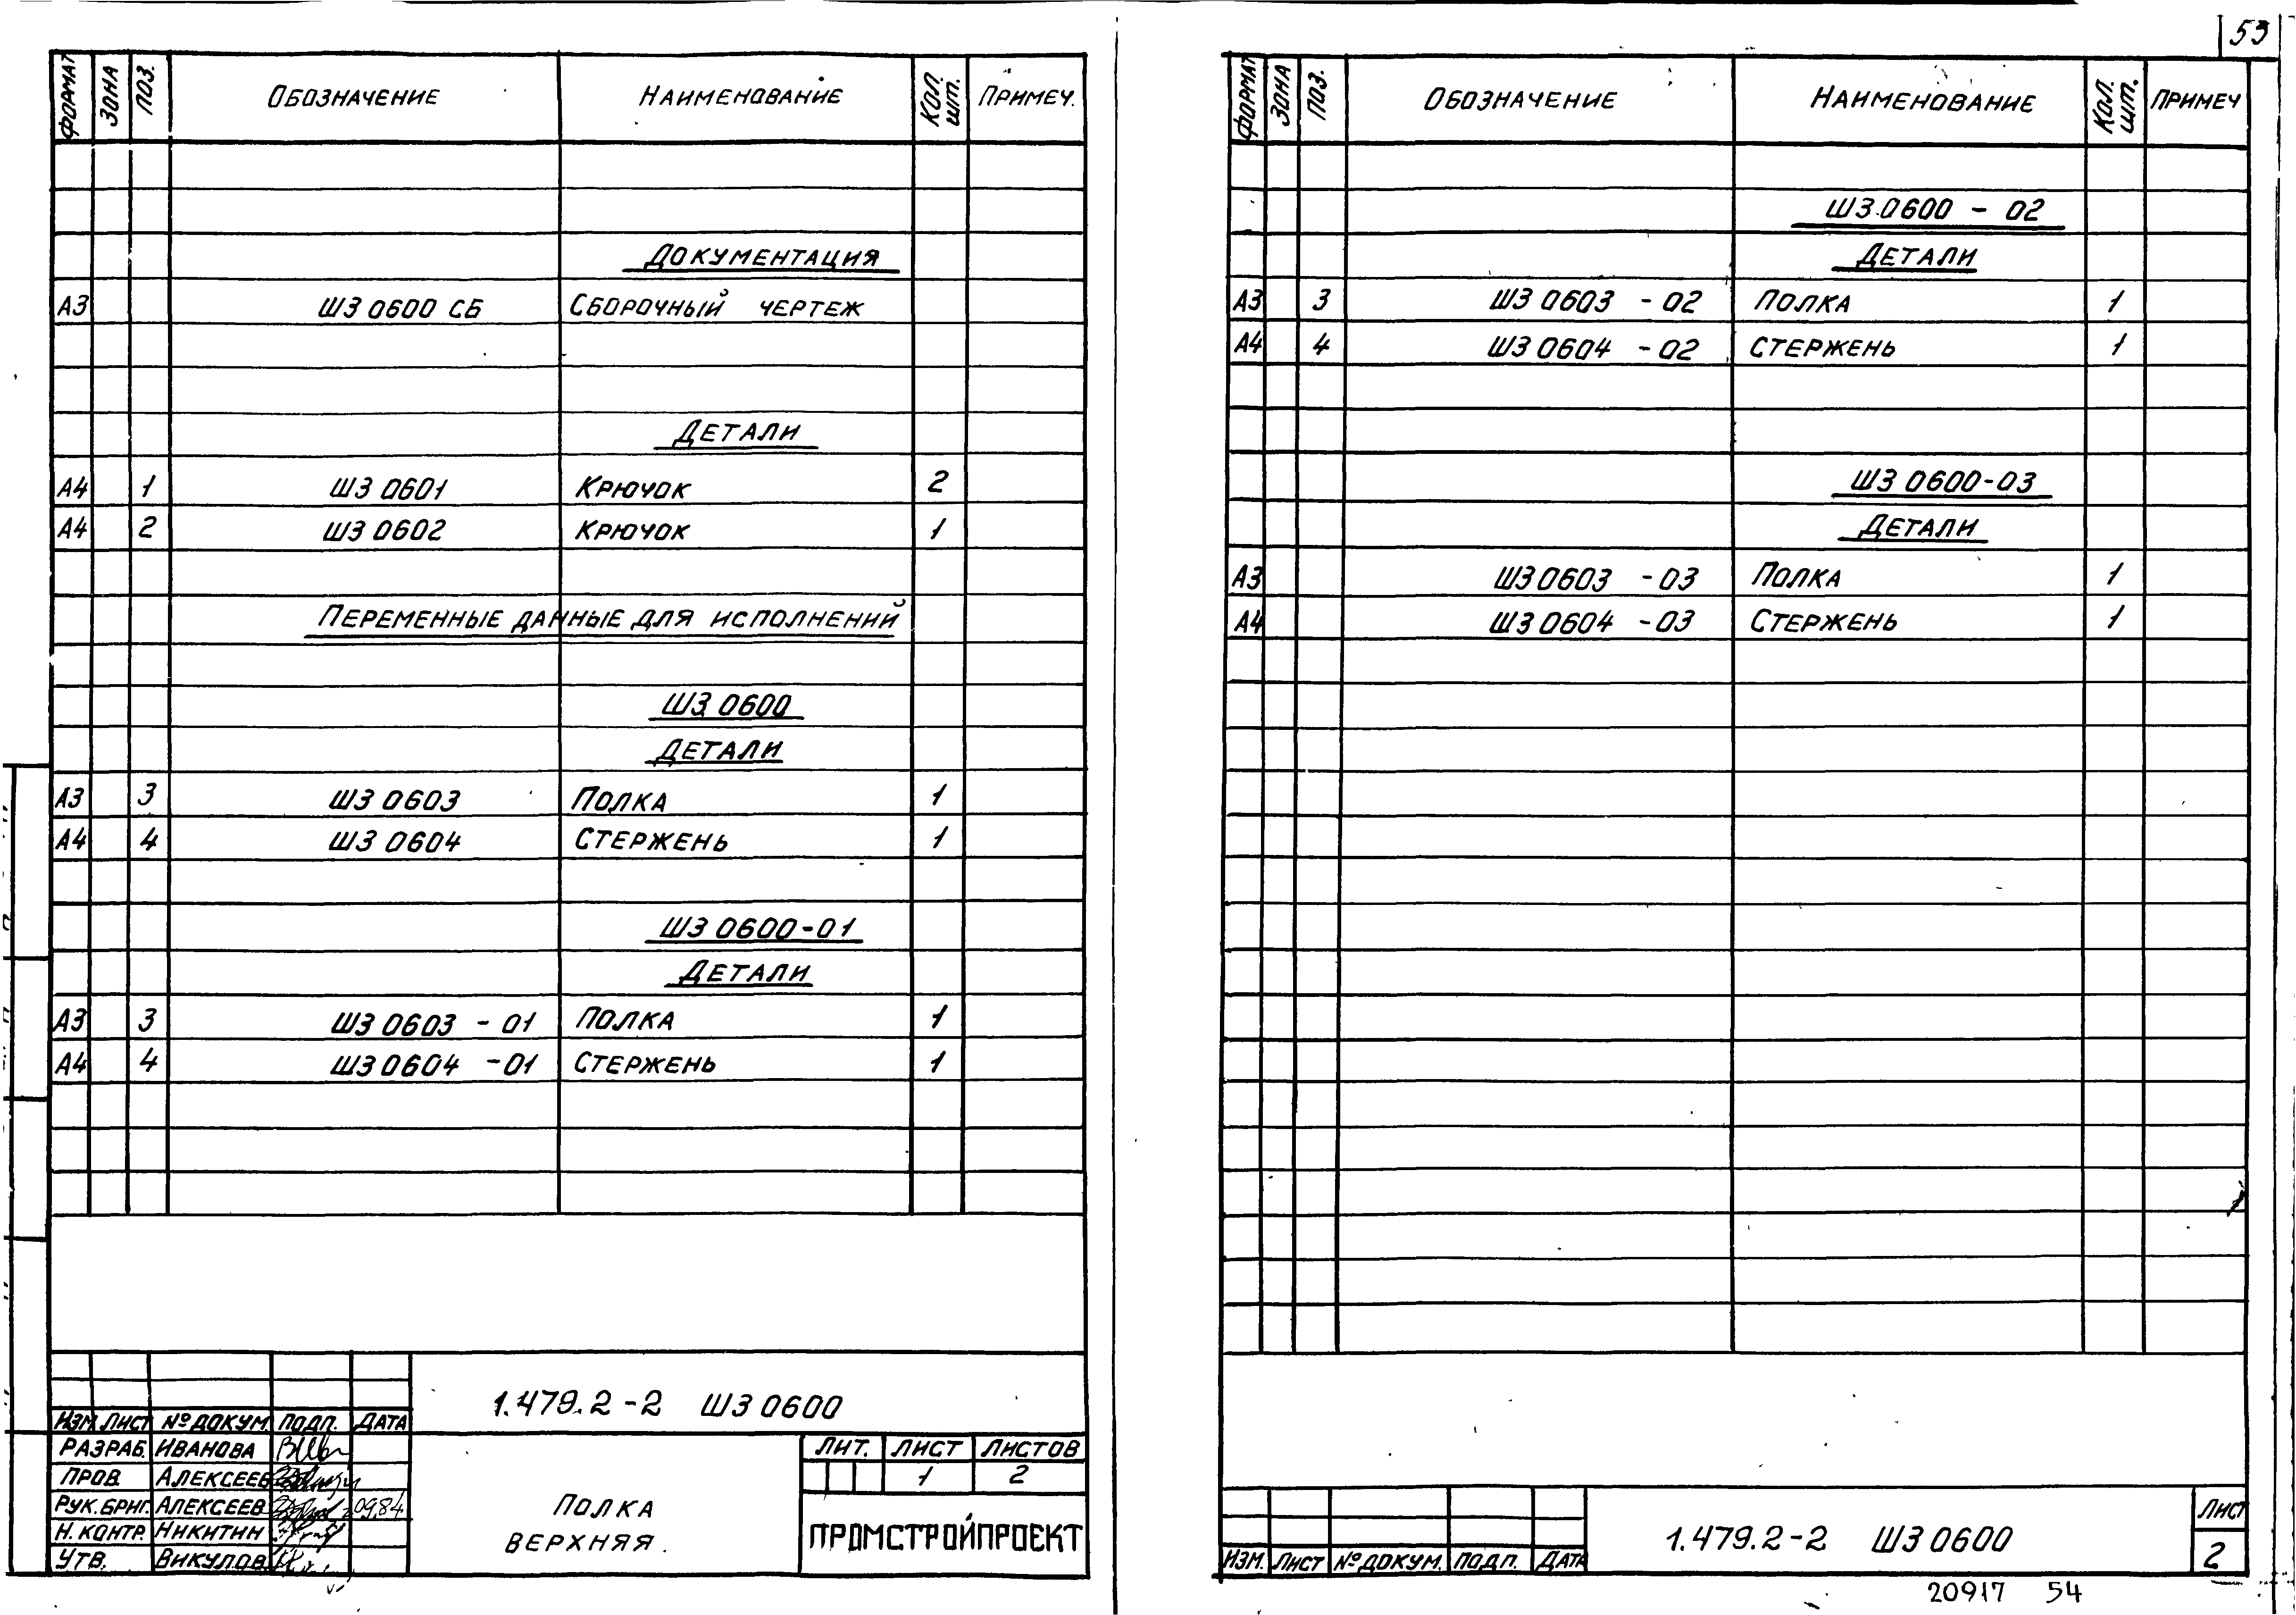 53
ФОРМАТ ЗОНА ПОЗ. ОБОЗНАЧЕНИЕ НАИМЕНОВАНИЕ КОЛ. ШТ. ПРИМЕЧ.
ДОКУМЕНТАЦИЯ
А3 ШЗ 0600 СБ СБОРОЧНЫЙ ЧЕРТЕЖ
ДЕТАЛИ
А4 1 ШЗ 0601 КРЮЧОК 2
А4 2 ШЗ 0602 КРЮЧОК 1
ПЕРЕМЕННЫЕ ДАННЫЕ ДЛЯ ИСПОЛНЕНИЙ
ШЗ 0600
ДЕТАЛИ
А3 3 ШЗ 0603 ПОЛКА 1
А4 4 ШЗ 0604 СТЕРЖЕНЬ 1
ШЗ 0600-01
ДЕТАЛИ
А3 3 ШЗ 0603 - 01 ПОЛКА 1
А4 4 ШЗ 0604 - 01 СТЕРЖЕНЬ 1
1.479.2-2 ШЗ 0600
ИЗМ ЛИСТ № ДОКУМ. ПОДП. ДАТА
РАЗРАБ. ИВАНОВА
ПРОВ. АЛЕКСЕЕВ
РУК. БРИГ. АЛЕКСЕЕВ 09.84
Н. КОНТР. НИКИТИН
УТВ. ВИКУЛОВ
ПОЛКА
ВЕРХНЯЯ.
ЛИТ. ЛИСТ ЛИСТОВ
1 2
ПРОМСТРОЙПРОЕКТ
ФОРМАТ ЗОНА ПОЗ. ОБОЗНАЧЕНИЕ НАИМЕНОВАНИЕ КОЛ. ШТ. ПРИМЕЧ
ШЗ 0600 - 02
ДЕТАЛИ
А3 3 ШЗ 0603 - 02 ПОЛКА 1
А4 4 ШЗ 0604 - 02 СТЕРЖЕНЬ 1
ШЗ 0600-03
ДЕТАЛИ
А3 ШЗ 0603 - 03 ПОЛКА 1
А4 ШЗ 0604 - 03 СТЕРЖЕНЬ 1
ИЗМ. ЛИСТ № ДОКУМ. ПОДП. ДАТА
1.479.2-2 ШЗ 0600
ЛИСТ
2
20917 54